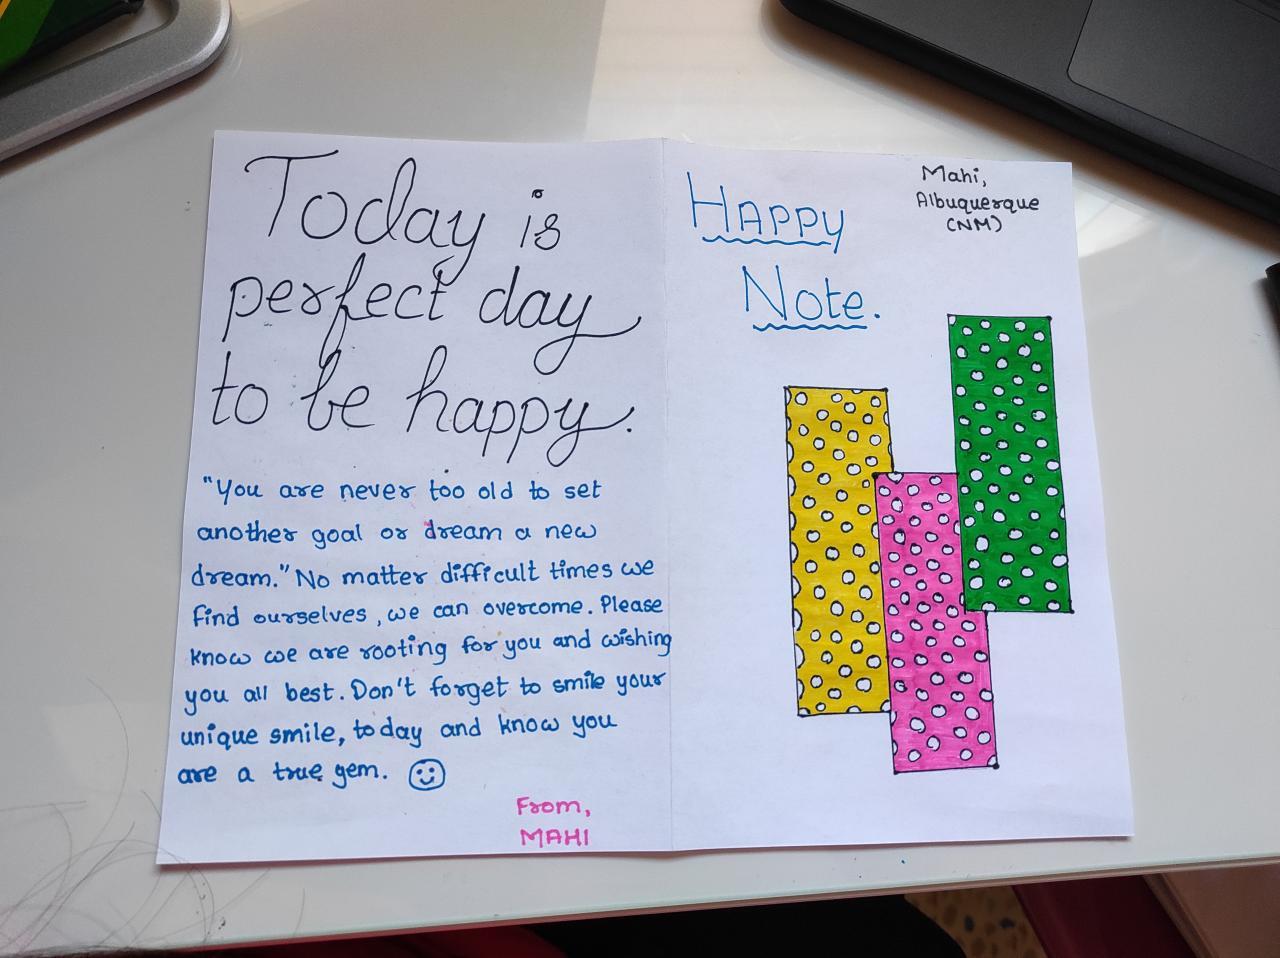 Today is
perfect day
to be happy.
"You are never too old to set
another goal or dream a new
dream." No matter difficult times we
find ourselves, we can overcome. Please
know we are rooting for you and wishing
you all best. Don't forget to smile your
unique smile, today and know you
are a true gem.
From,
MAHI
HAPPY
NOTE.
Mahi,
Albuquerque
(NM)